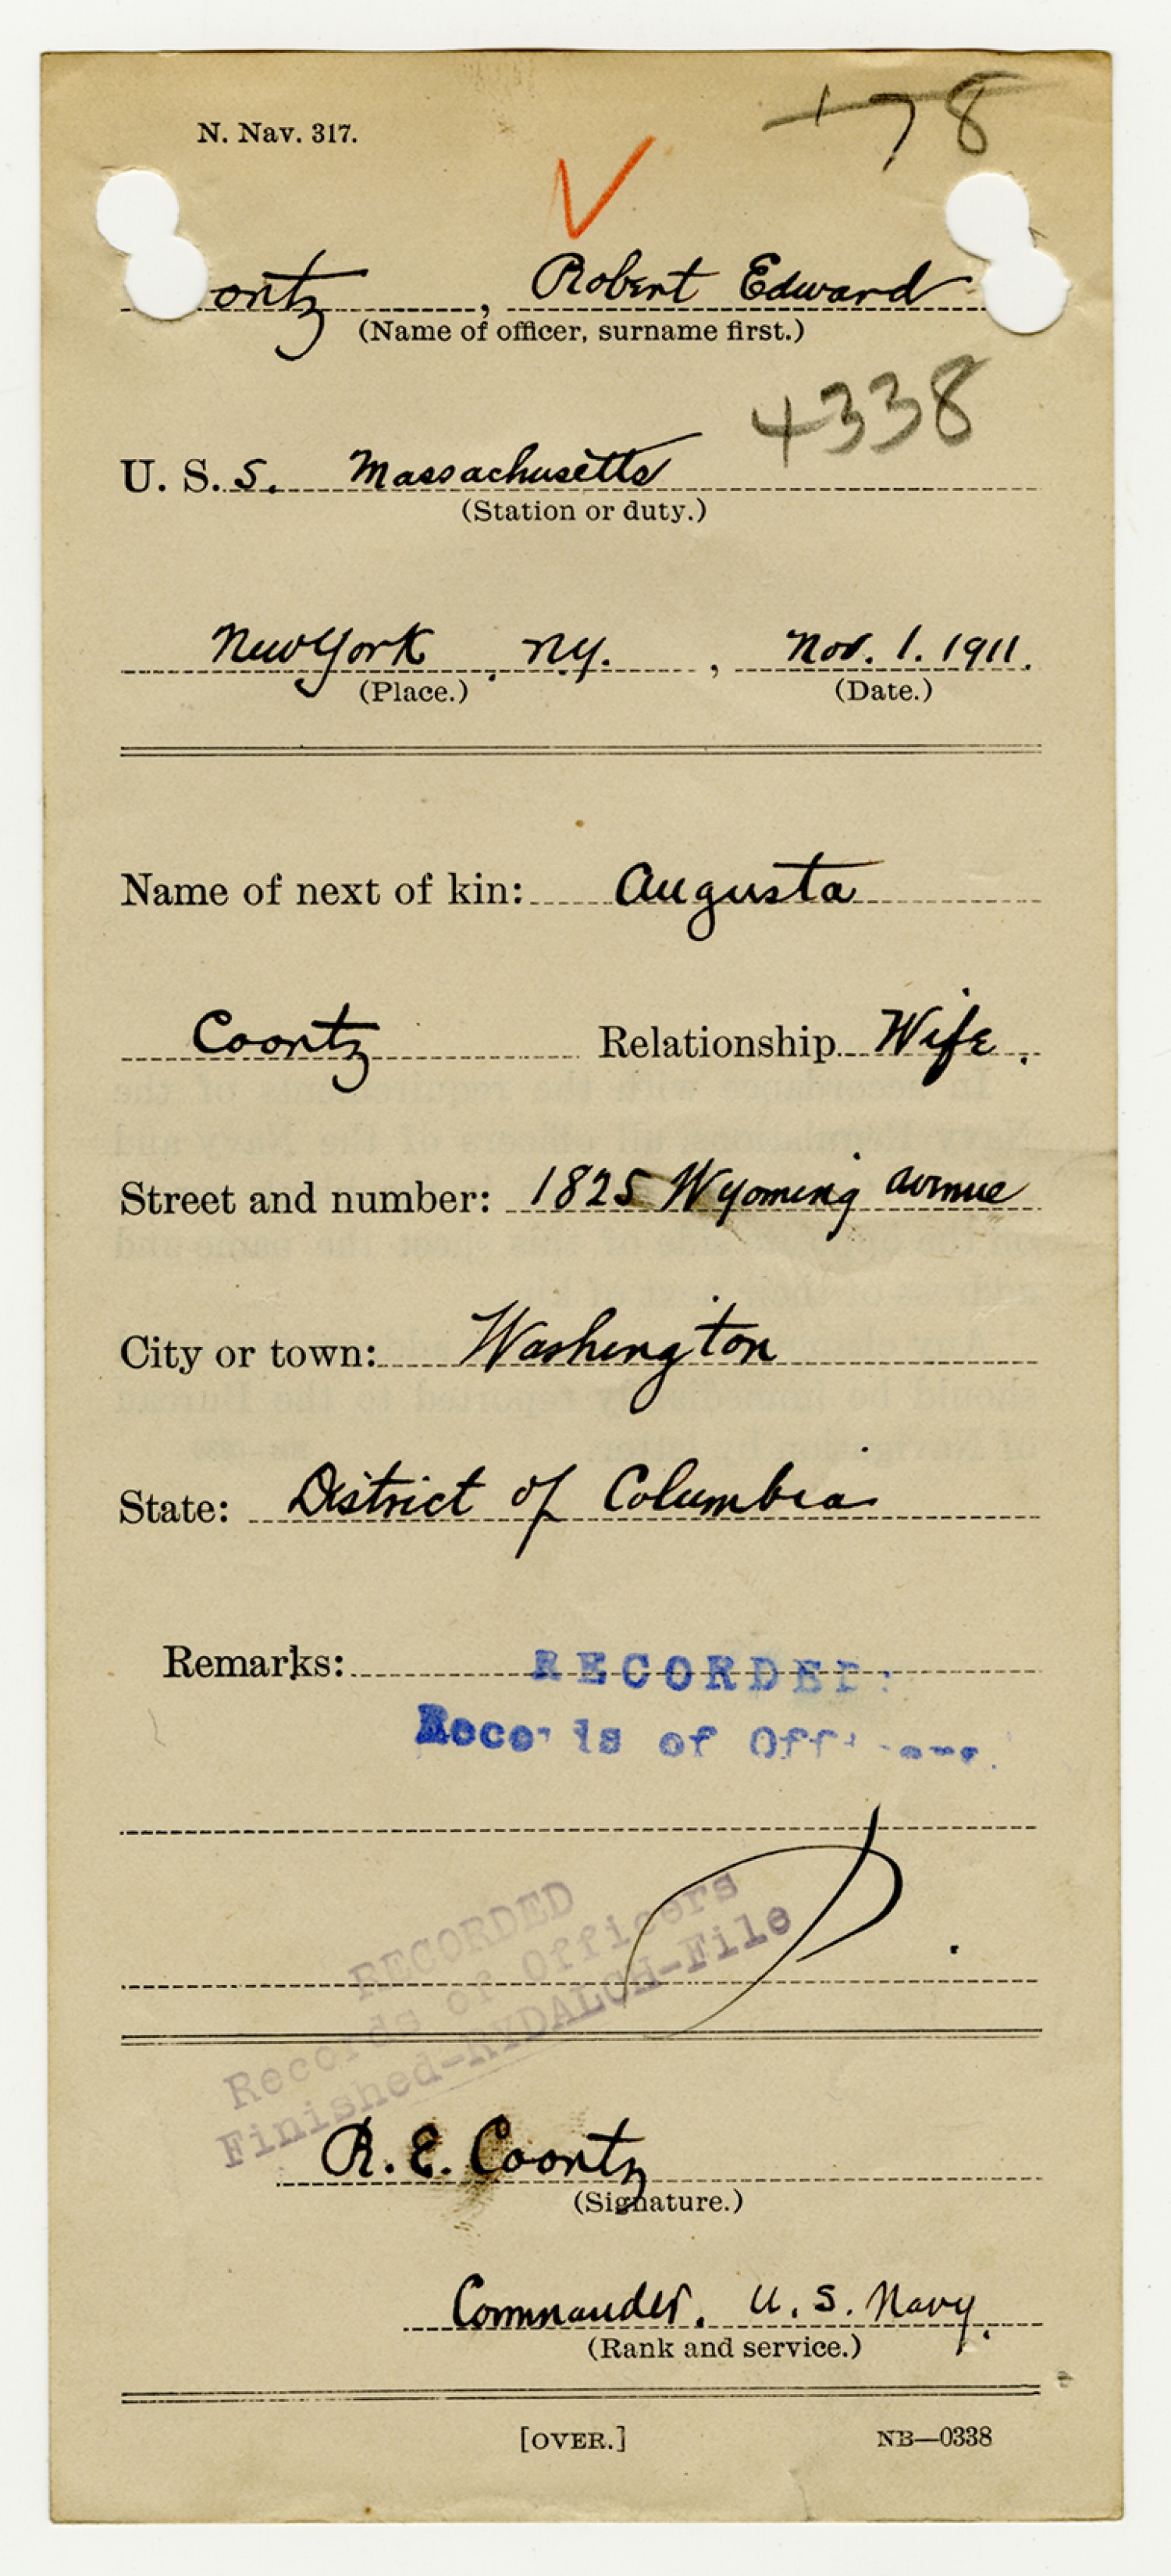 N. Nav. 317.
78
ontz, Robert Edward
(Name of officer, surname first.)
4338
U. S. S. Massachusetts
(Station or duty.)
New York, N.Y., Nov. 1. 1911.
(Place.) (Date.)
Name of next of kin: Augusta
Coontz Relationship Wife.
Street and number: 1825 Wyoming Avenue
City or town: Washington
State: District of Columbia
Remarks: RECORDED:
Records of Officers.
RECORDED
Records of Officers
Finished-RYDALCH-File
R. E. Coontz
(Signature.)
Commander. U. S. Navy.
(Rank and service.)
[OVER.] NB—0338